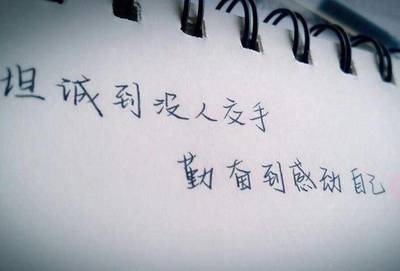 坦诚到没人交手
勤奋到感动自己